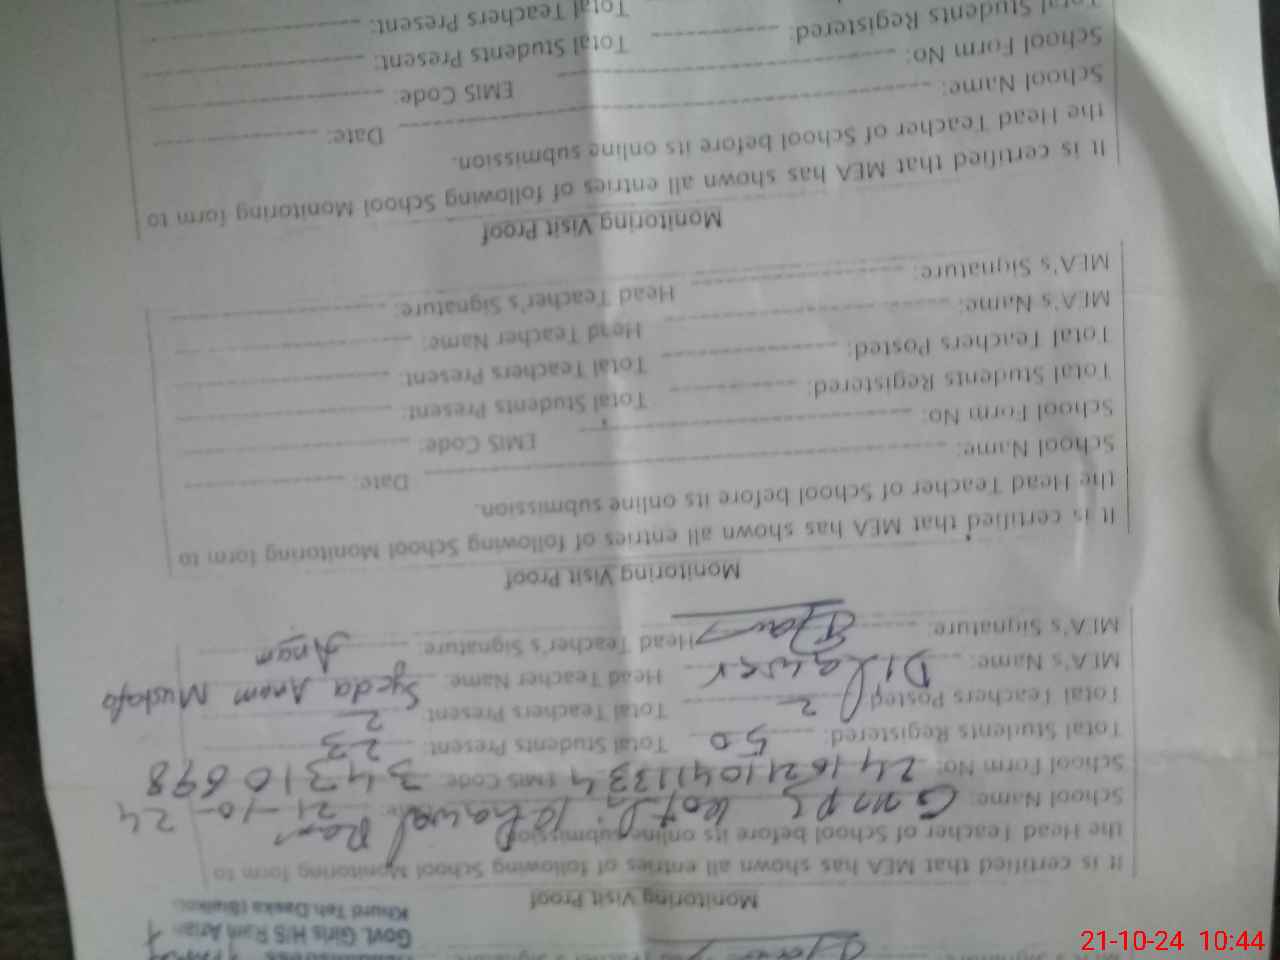 Govt. Girls H/S Ram Arian
Khurd Teh.Daska
Monitoring Visit Proof
It is certified that MEA has shown all entries of following School Monitoring form to
the Head Teacher of School before its online submission.
School Name: Gmps Kotli 21-10-24
School Form No: EMIS Code: 34310698
Total Students Registered: 50 Total Students Present: 23
Total Teachers Posted: 2 Total Teachers Present: 2
MEA's Name: Dilawer Head Teacher Name: Syeda Anam Mustafa
MEA's Signature: Head Teacher's Signature: Anam
Monitoring Visit Proof
It is certified that MEA has shown all entries of following School Monitoring form to
the Head Teacher of School before its online submission.
School Name: Date:
School Form No: EMIS Code:
Total Students Registered: Total Students Present:
Total Teachers Posted: Total Teachers Present:
MEA's Name: Head Teacher Name:
MEA's Signature: Head Teacher's Signature:
Monitoring Visit Proof
It is certified that MEA has shown all entries of following School Monitoring form to
the Head Teacher of School before its online submission.
School Name: Date:
School Form No: EMIS Code:
Total Students Registered: Total Students Present:
Total Teachers Present:
21-10-24 10:44